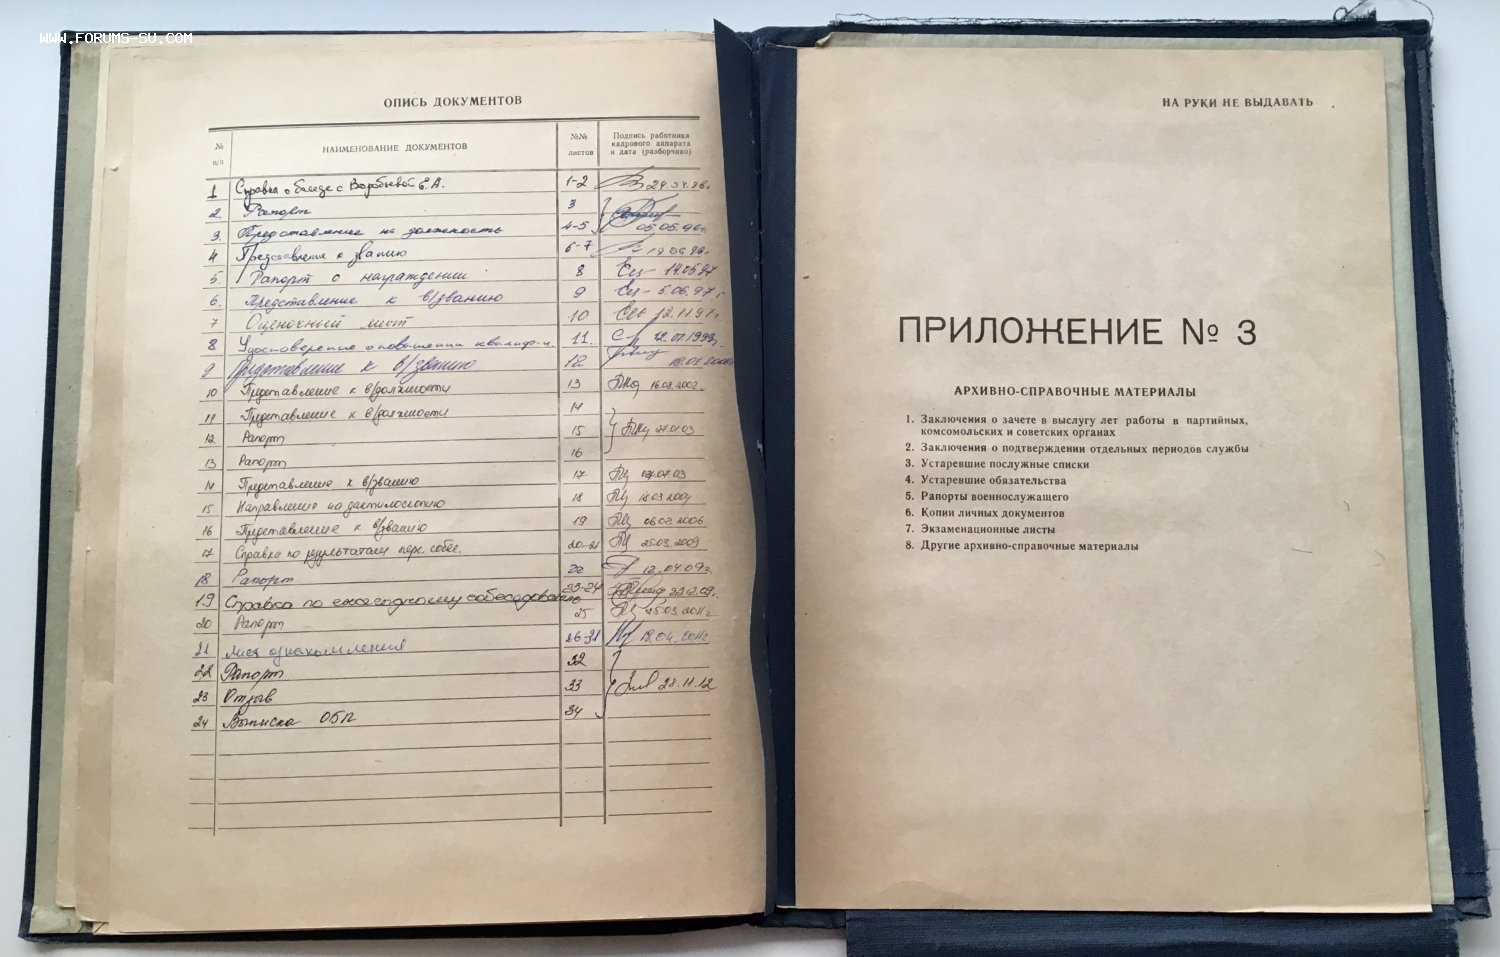 WWW.FORUMS-SU.COM
ОПИСЬ ДОКУМЕНТОВ
№ п/п НАИМЕНОВАНИЕ ДОКУМЕНТОВ №№ листов Подпись работника кадрового аппарата и дата (разборчиво)
1 Справка о беседе с Воробьевой Е.А. 1-2 24.04.96г.
2. Рапорт 3
3. Представление на должность 4-5 05.05.96г.
4 Представление к званию 6-7 19.06.96г.
5 Рапорт о награждении 8 14.05.97
6. Представление к в/званию 9 5.06.97г.
7 Оценочный лист 10 12.11.97г.
8 Удостоверение о повышении квалиф-и 11. 12.07.1999г.
9 Представление к в/званию 12
10 Представление к в/должности 13 16.08.2002г.
11 Представление к в/должности 14
12 Рапорт 15 27.01.03
13 Рапорт 16
14 Представление к в/званию 17 07.07.03
15 Направление на дактилоскопию 18 18.03.2004
16 Представление к в/званию 19 06.02.2006
17 Справка по результатам перс. собес. 20-21 25.03.2009
18 Рапорт 22 12.04.09г.
19 Справка по ежегодному собеседованию 23-24 23.12.09г.
20 Рапорт 25 25.03.2011г.
21 Лист ознакомления 26-31 18.04.2011г.
22 Рапорт 32
23 Отзыв 33 28.11.12
24 Выписка ОБП 34
НА РУКИ НЕ ВЫДАВАТЬ
ПРИЛОЖЕНИЕ № 3
АРХИВНО-СПРАВОЧНЫЕ МАТЕРИАЛЫ
1. Заключения о зачете в выслугу лет работы в партийных,
комсомольских и советских органах
2. Заключения о подтверждении отдельных периодов службы
3. Устаревшие послужные списки
4. Устаревшие обязательства
5. Рапорты военнослужащего
6. Копии личных документов
7. Экзаменационные листы
8. Другие архивно-справочные материалы